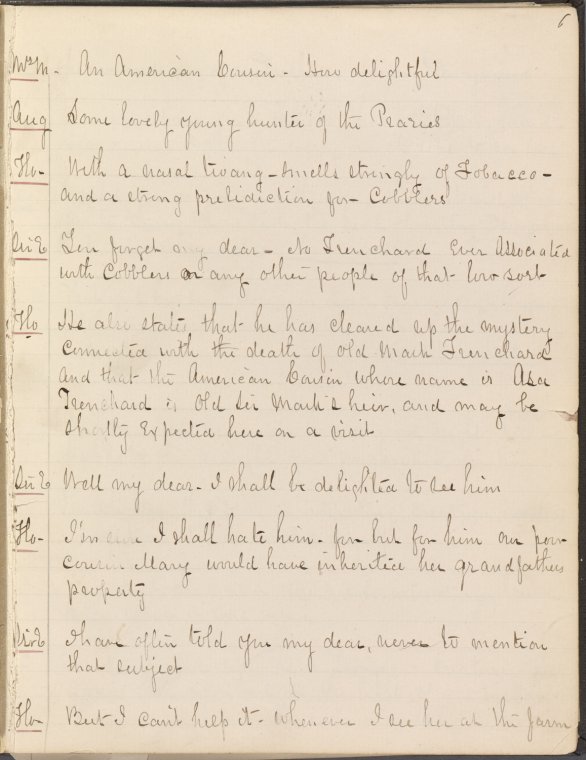 6
Mrs M. An American Cousin - How delightful
Aug Some lovely young hunter of the Praries
Flo- With a nasal twang - smells stringly of Tobacco -
and a strong prelidiction for - Cobblers
Sir E You forget my dear - No Trenchard Ever Associated
with Cobblers or any other people of that low sort
Flo He also states that he has cleared up the mystery
Connected with the death of old Mark Trenchard
and that the American Cousin whose name is Asa
Trenchard is Old Sir Mark's heir, and may be
shortly Expected here on a visit
Sir E Well my dear - I shall be delighted to see him
Flo- I'm sure I shall hate him - for but for him our poor
cousin Mary would have inherited her grandfathers
property
Sir E I have often told you my dear, never to mention
that subject
Flo- But I can't help it - whenever I see her at the farm